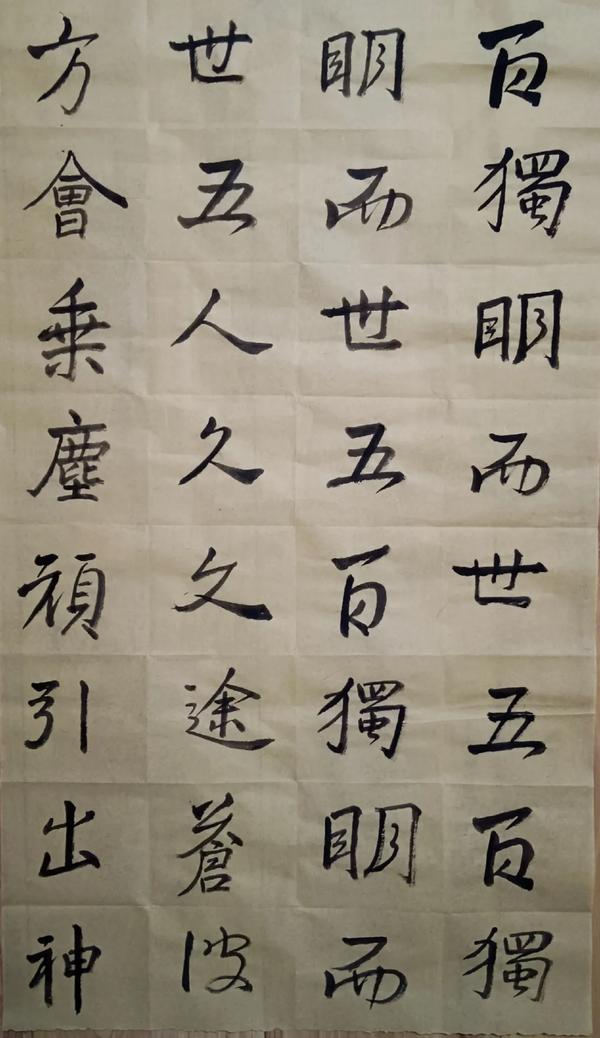 百獨明而世五百獨
明而世五百獨明而
世五人久文途蒼波
方會乘塵頑引出神